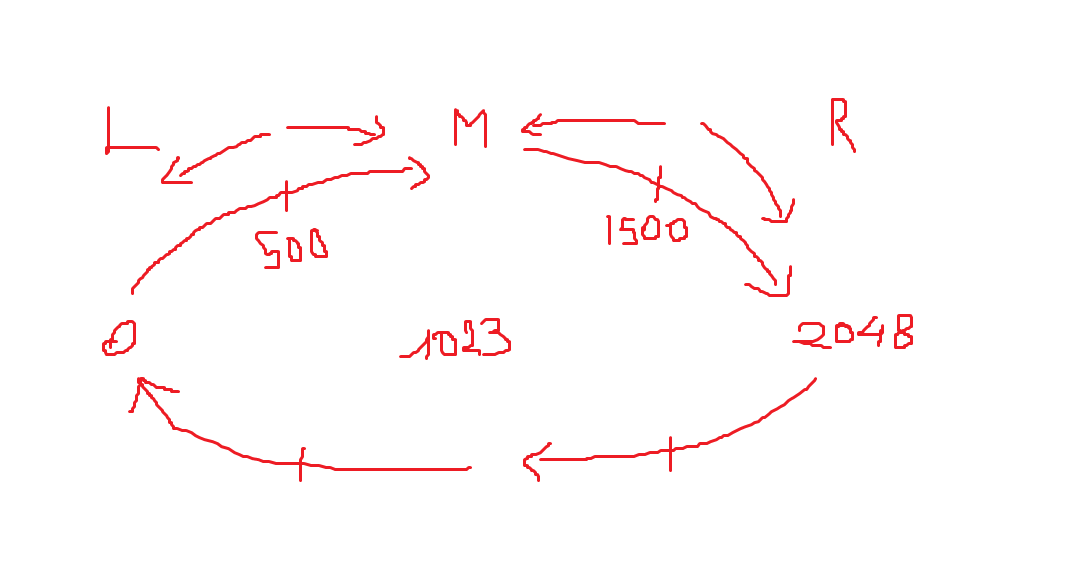 L M R
500 1500
0 1023 2048